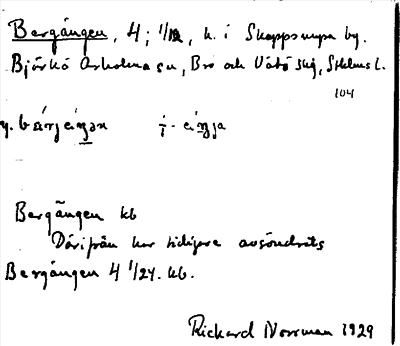 Bergängen, 4; 1/12, h. i Skeppsmyra by.
Björkö Arholma sn, Bro och Vätö skg, Sthlms l.
104
Bergängen hb
Därifrån har tidigare avsöndrats
Bergängen 4 1/24. hb.
Rickard Norrman 1929